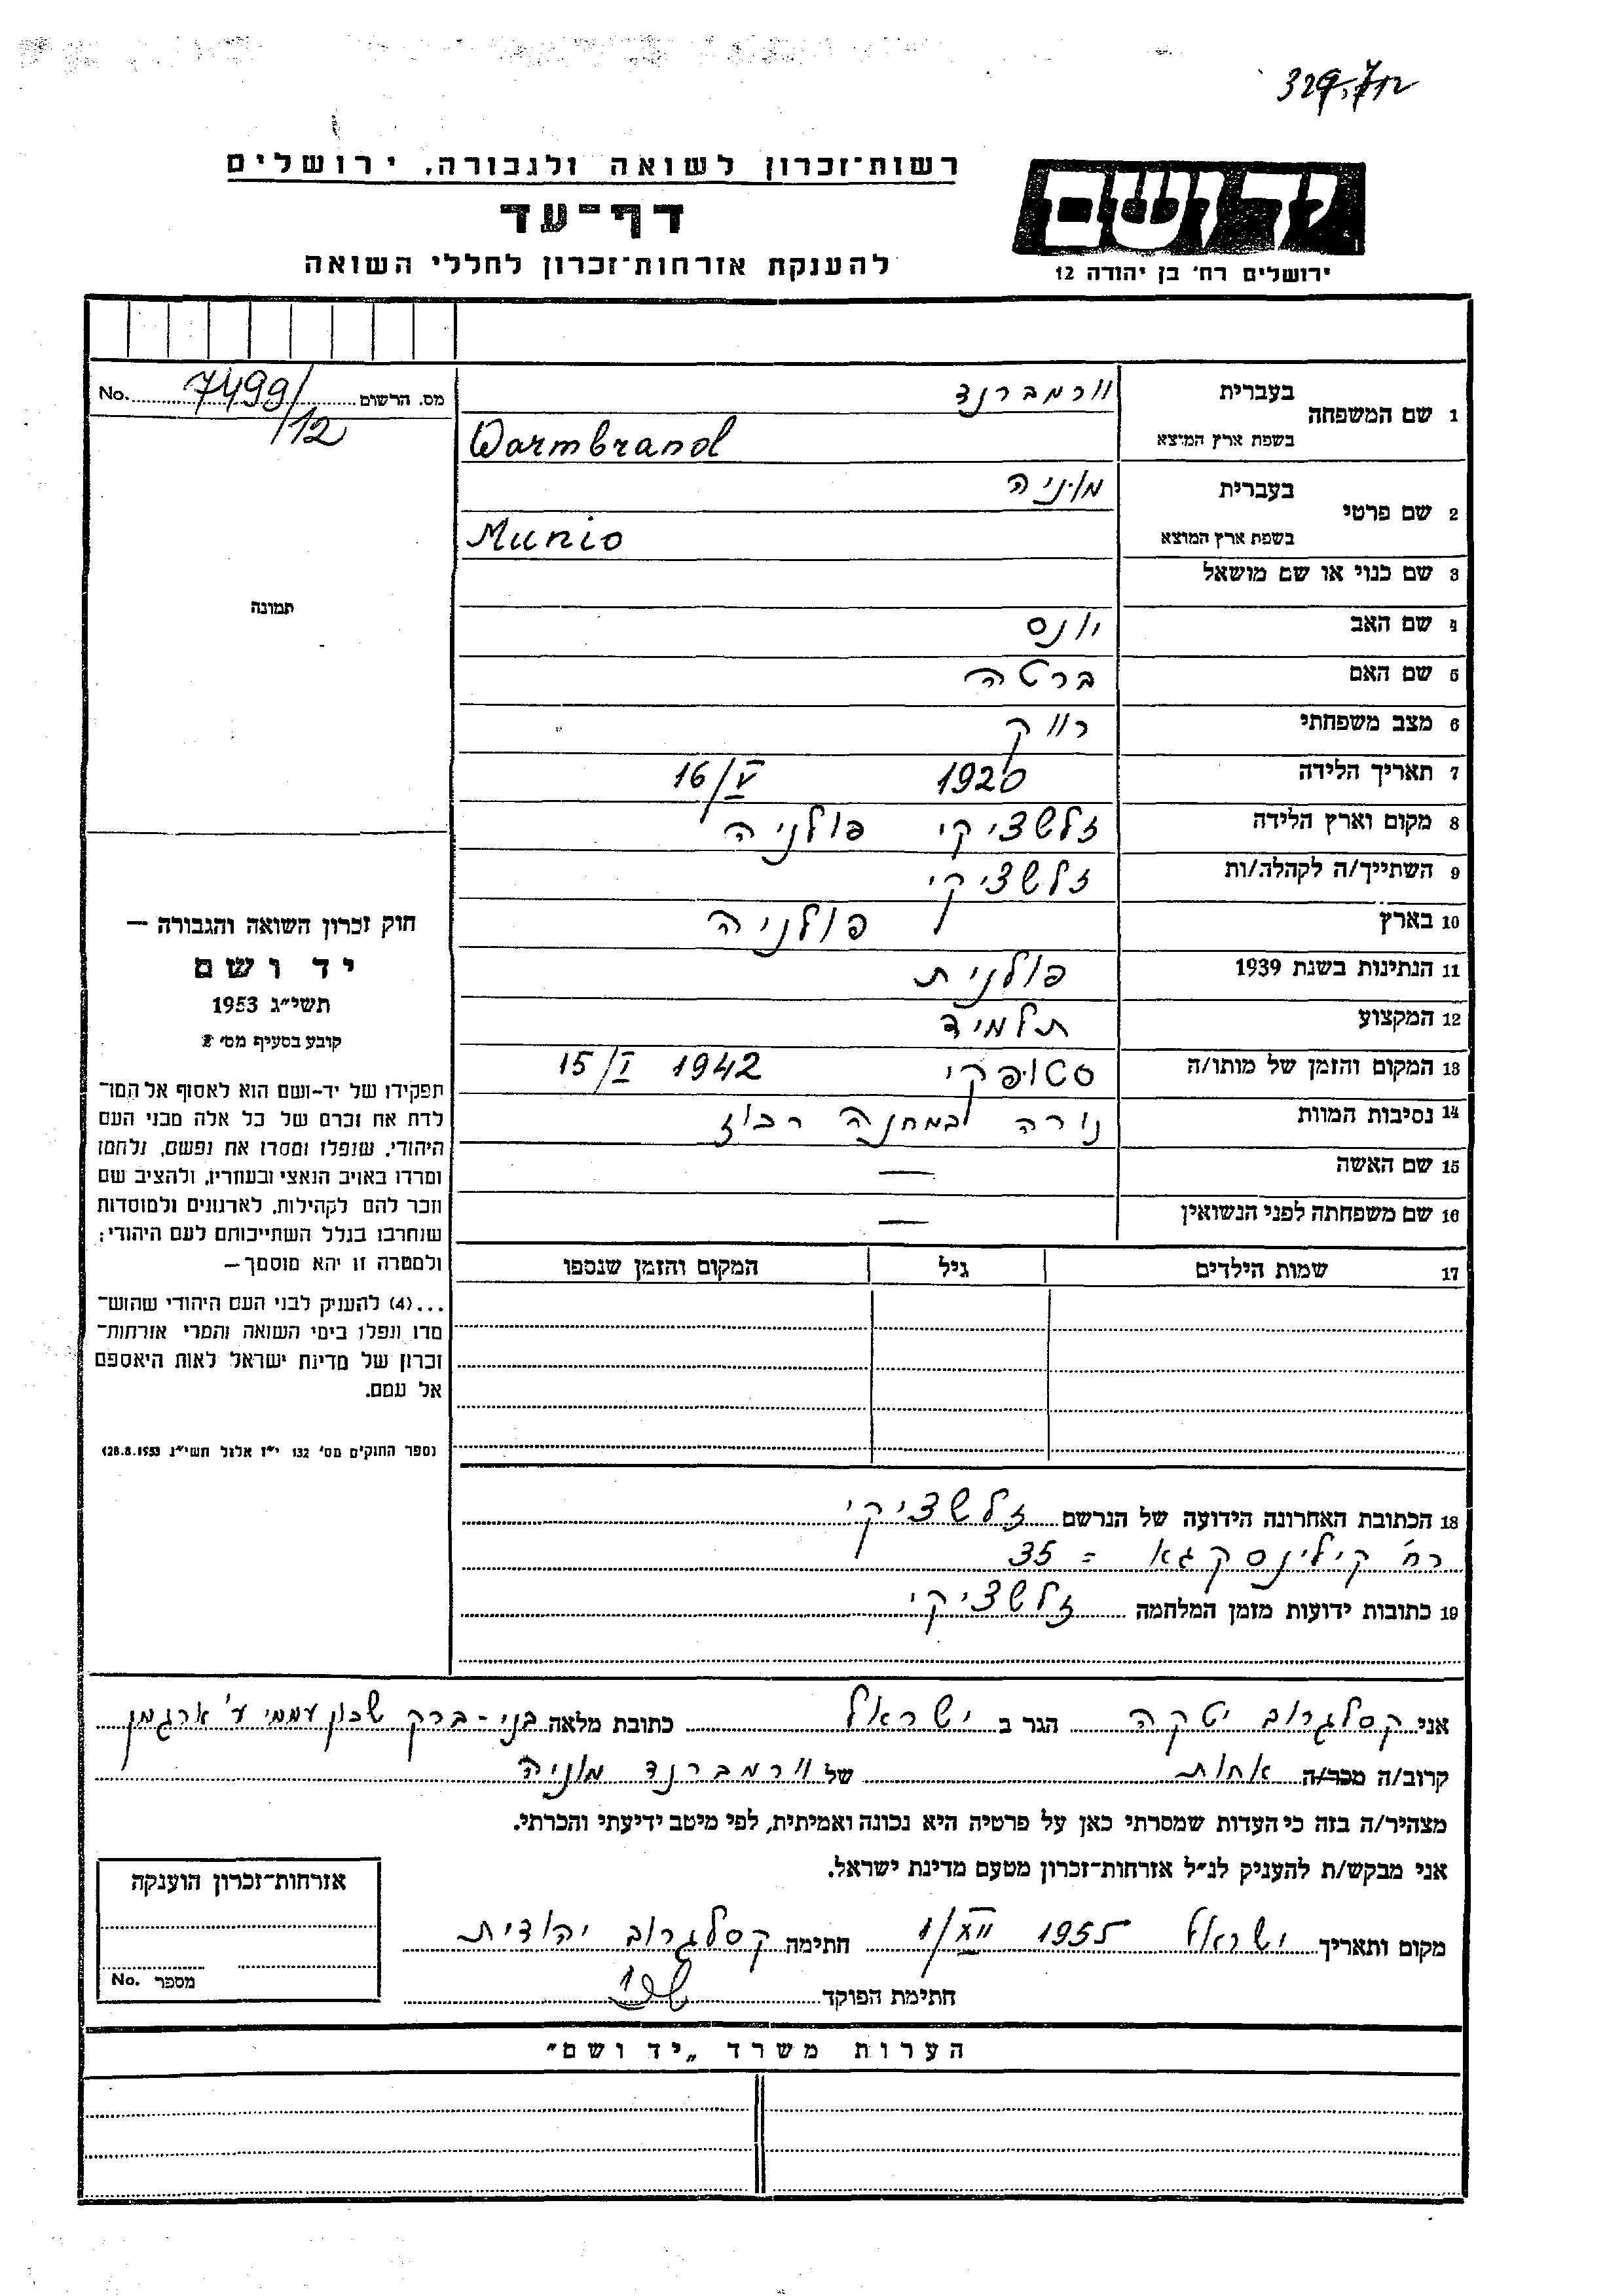 329,712
רשות־זכרון לשואה ולגבורה, ירושלים
דף־עד
להענקת אזרחות־זכרון לחללי השואה
יד ושם
ירושלים רח' בן יהודה 12
מס. הרשום 7499/12 No.
1 שם המשפחה
בעברית וורמברנד
בשפת ארץ המוצא Warmbrand
2 שם פרטי
בעברית מוניה
בשפת ארץ המוצא Munio
3 שם כנוי או שם מושאל
תמונה
4 שם האב יונס
5 שם האם ברטה
6 מצב משפחתי רווק
7 תאריך הלידה 1920 16/V
8 מקום וארץ הלידה זלשציקי פולניה
9 השתייך/ה לקהלה/ות זלשציקי
10 בארץ פולניה
11 הנתינות בשנת 1939 פולנית
12 המקצוע תלמיד
13 המקום והזמן של מותו/ה סטופקי 1942 15/I
14 נסיבות המוות נורה במחנה
15 שם האשה —
16 שם משפחתה לפני הנשואין —
17 שמות הילדים גיל המקום והזמן שנספו
חוק זכרון השואה והגבורה —
יד ושם
תשי״ג 1953
קובע בסעיף מס' 2
תפקידו של יד-ושם הוא לאסוף אל המו־
לדת את זכרם של כל אלה מבני העם
היהודי, שנפלו ומסרו את נפשם, נלחמו
ומרדו באויב הנאצי ובעוזריו, ולהציב שם
וזכר להם לקהילות, לארגונים ולמוסדות
שנחרבו בגלל השתייכותם לעם היהודי;
ולמטרה זו יהא מוסמך —
...(4) להעניק לבני העם היהודי שהוש־
מדו ונפלו בימי השואה והמרי אזרחות־
זכרון של מדינת ישראל לאות היאספם
אל עמם.
(ספר החוקים מס' 132 י״ז אלול תשי״ג 28.8.1953)
18 הכתובת האחרונה הידועה של הנרשם זלשציקי
רח' קילינסקגא = 35
19 כתובות ידועות מזמן המלחמה זלשציקי
אני קסלגרוב יטקה הגר ב ישראל כתובת מלאה בני-ברק שכון עממי ע' ארגמן
קרוב/ה מכר/ה אחות של וורמברנד מוניה
מצהיר/ה בזה כי העדות שמסרתי כאן על פרטיה היא נכונה ואמיתית, לפי מיטב ידיעתי והכרתי.
אני מבקש/ת להעניק לנ״ל אזרחות־זכרון מטעם מדינת ישראל.
מקום ותאריך ישראל 1955 1/XII חתימה קסלגרוב יהודית
חתימת הפוקד
אזרחות־זכרון הוענקה
מספר No.
הערות משרד „יד ושם״